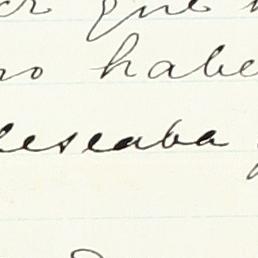 que
no habe
deseaba